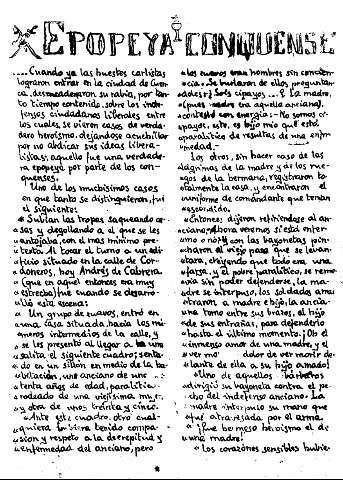 EPOPEYA CONQUENSE
....Cuando ya las huestes carlistas
lograron entrar en la ciudad de Cuen
ca, desencadenaron su rabia, por tan
to tiempo contenida, sobre los inde
fensos ciudadanos liberales entre
los cuales, se vieron casos de verda
dero heroísmo, dejándose acuchillar
por no abdicar sus ideas libera-
listas; aquello fue una verdade
ra epopeya por parte de los con-
quenses.
Uno de los muchísimos casos
en que tanto se distinguieron, fue
el siguiente:
"Subían las tropas saqueando ca
sas y degollando a el que se les
antojaba, con el mas mínimo pre
texto. Al tocar el turno a un edi
ficio situado en la calle de Cor
doneros, hoy Andrés de Cabrera
(que en aquel entonces era muy
estrecha) fue cuando se desarro
lló esta escena:
" Un grupo de zuavos, entró en
una casa situada, hacia los nú
meros intermedios de la calle, y
se les presentó al llegar a la una
salita el siguiente cuadro; senta
do en un sillón en medio de la ha
bitación, uno anciano de unos
tenta años de edad, paralítico
rodeado de una viejísima mujer
y otra de unos treinta y cinco.
Ante este cuadro, otro cual
quiera hubiera tenido compa
sión y respeto a la decrepitud y
enfermedad del anciano, pero
los zuavos eran hombres sin concien
cia... Se burlaron de ellos, preguntan
doles: ¿Sois cipayos ...? La madre,
(pues madre era aquella anciana),
contestó con energía:- No somos ci
payos, este, es hijo mío que está
paralítico de resultas de una enfer
medad.-
Los otros, sin hacer caso de las
lágrimas de la madre y de los rue
gos de la hermana, registraron to
talmente la casa, y encontraron el
uniforme de comandante que tenían
escondido.
"Entonces dijeron refiriéndose al an
ciano, Ahora veremos si está enfer
mo o no! Y con las bayonetas pin
charon al viejo para que se levan
tara, creyendo que todo era una
farsa, y el pobre paralítico, se remo
vía sin poder defenderse, la ma
dre se interpuso, los soldados ama
rraron a madre e hijo, la ancia
na tomó entre sus brazos, el hijo
de sus entrañas, para defenderlo
hasta el último momento. ¡Oh el
inmenso amor de una madre, y el
ver mo dolor de ver morir de-
lante de ella a su hijo amado!
"Uno de aquellos bárbaros
dirigió su bayoneta contra el pe
cho del indefenso anciano. La
madre interpuso su mano que
fué atravesada por el arma.
¡Qué hermoso heroísmo el de
una madre!
los corazones sensibles hubie-